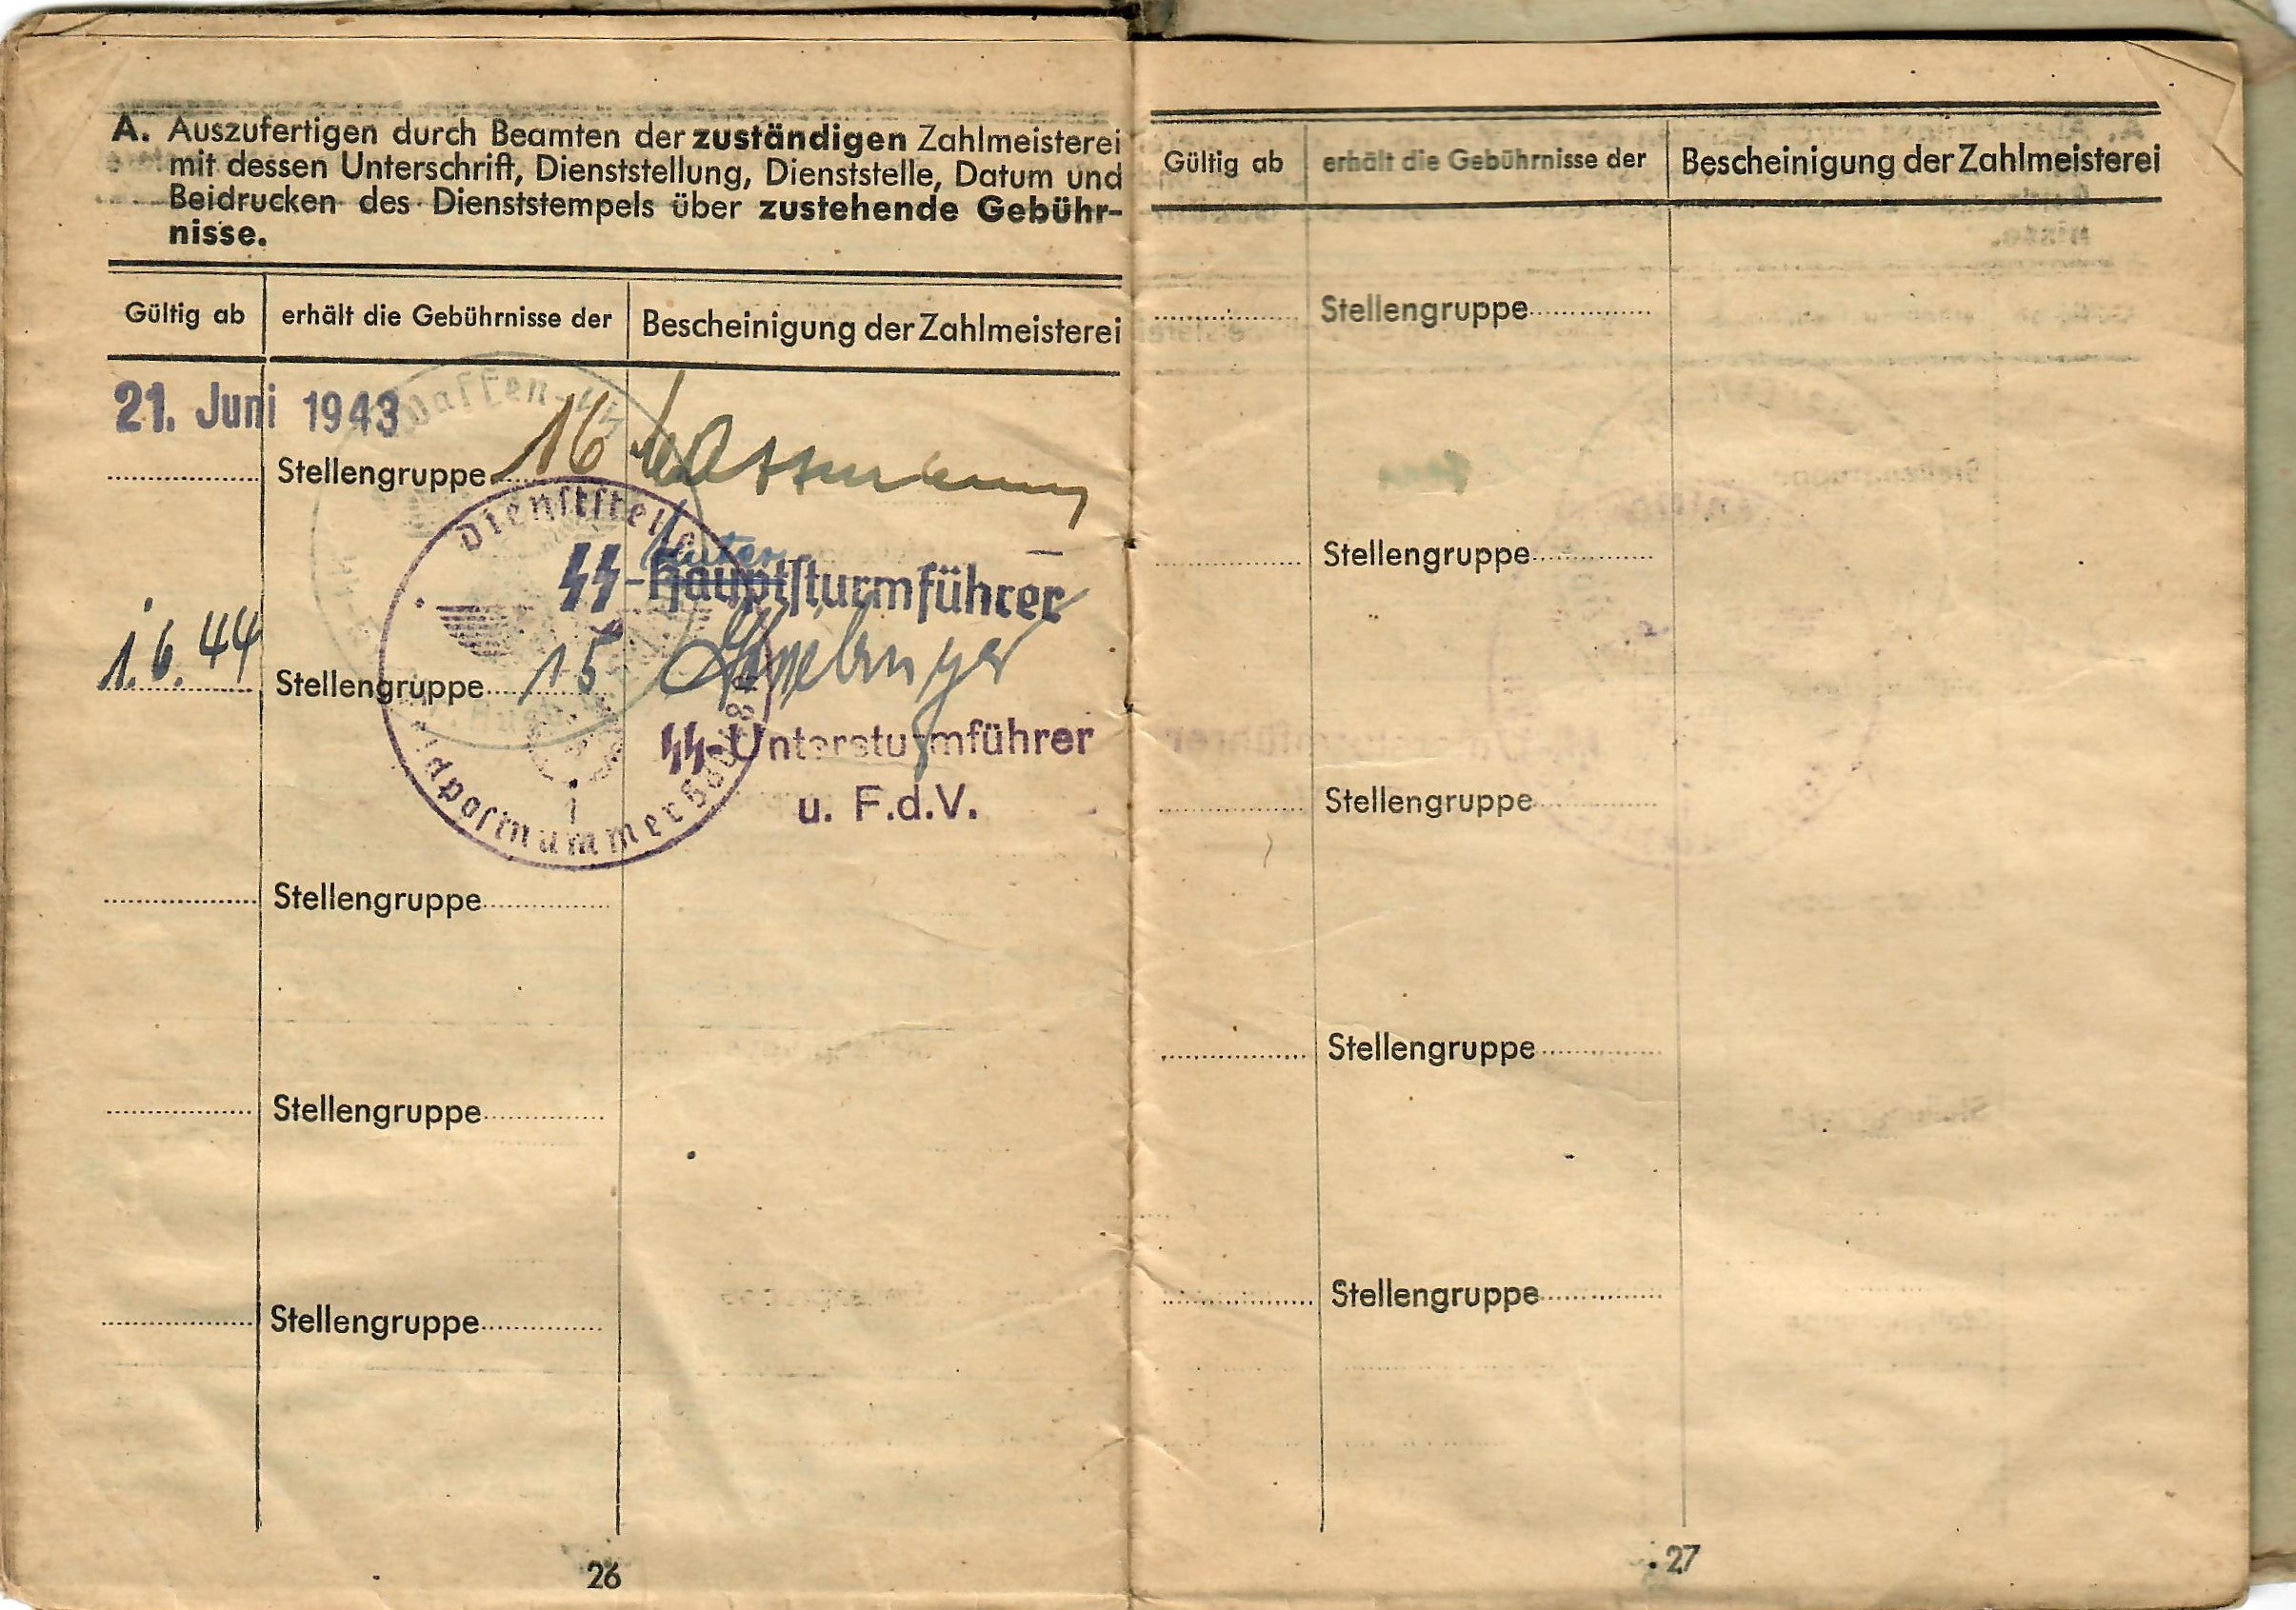 A. Auszufertigen durch Beamten der zuständigen Zahlmeisterei
mit dessen Unterschrift, Dienststellung, Dienststelle, Datum und
Beidrucken des Dienststempels über zustehende Gebühr-
nisse.
Gültig ab erhält die Gebührnisse der Bescheinigung der Zahlmeisterei
21. Juni 1943
Waffen-SS
Stellengruppe 16
Dienststelle
Unter
SS-Hauptsturmführer
1.6.44
Stellengruppe 15
SS-Untersturmführer
u. F.d.V.
Feldpostnummer
Stellengruppe
Stellengruppe
Stellengruppe
26
Gültig ab erhält die Gebührnisse der Bescheinigung der Zahlmeisterei
Stellengruppe
Stellengruppe
Stellengruppe
Stellengruppe
Stellengruppe
27